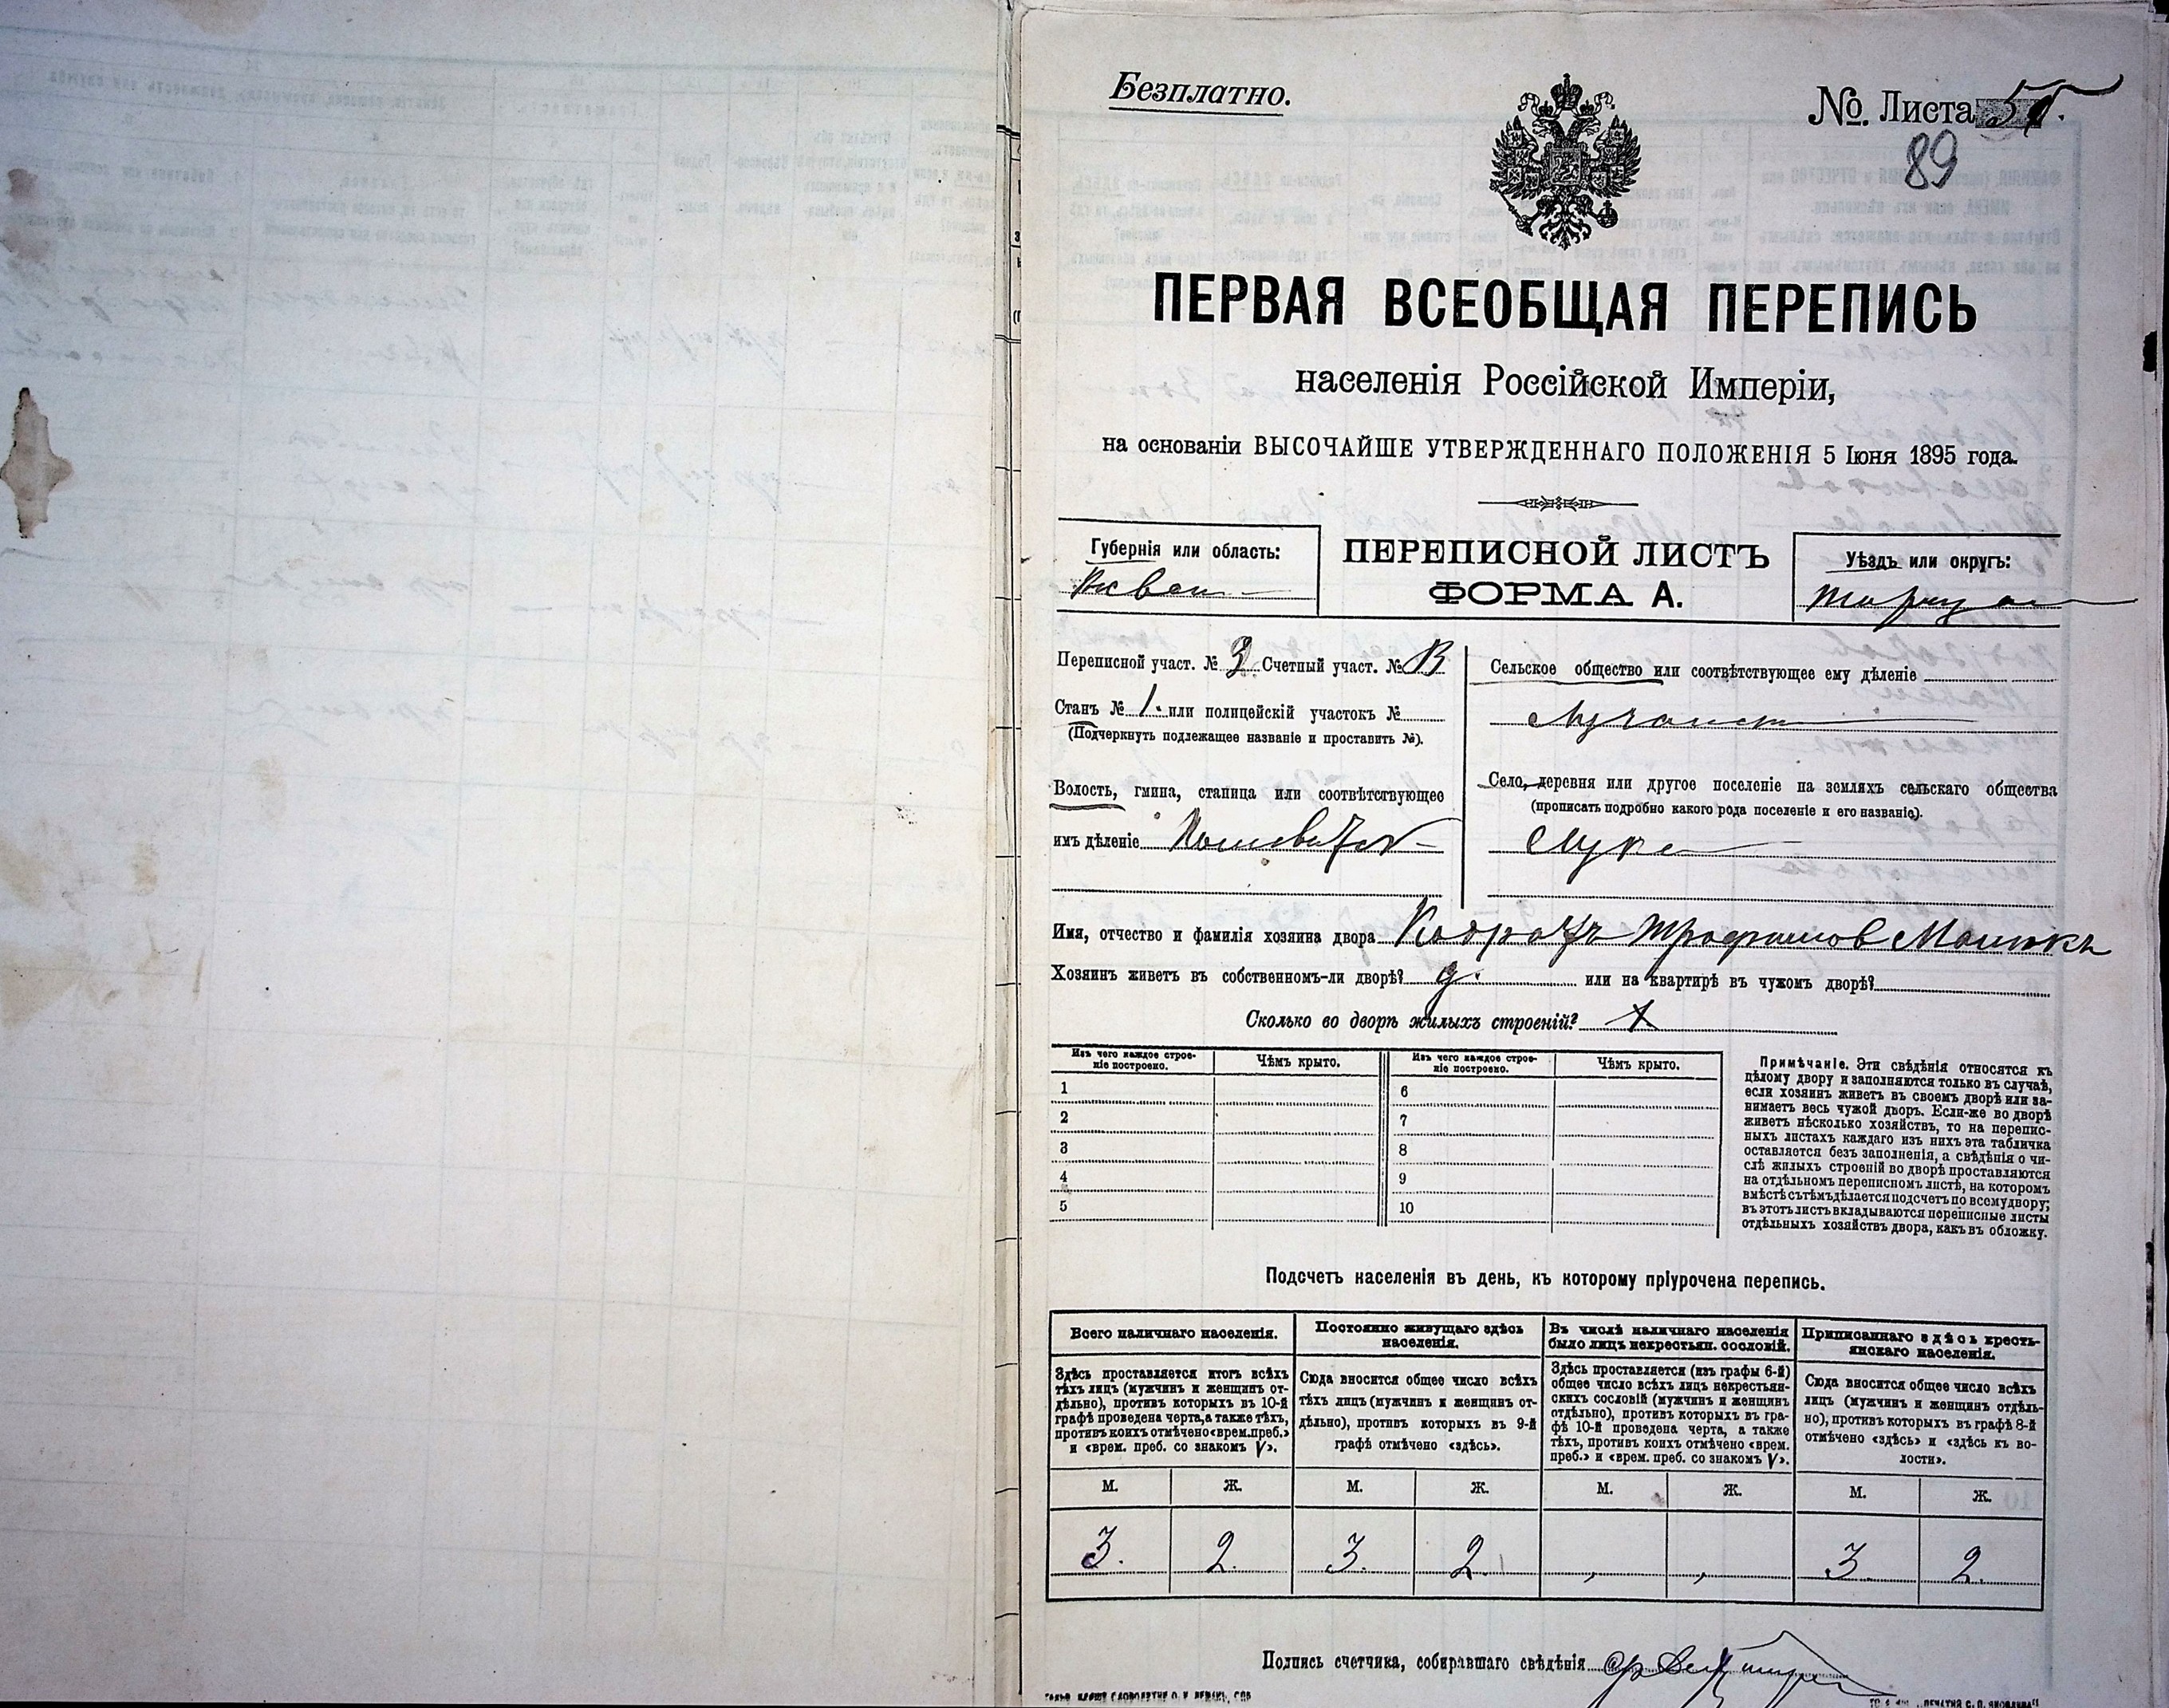 Безплатно.
№. Листа
89
ПЕРВАЯ ВСЕОБЩАЯ ПЕРЕПИСЬ
населенія Россійской Имперіи,
на основаніи ВЫСОЧАЙШЕ УТВЕРЖДЕННАГО ПОЛОЖЕНІЯ 5 Іюня 1895 года.
Губернія или область:
ПЕРЕПИСНОЙ ЛИСТЪ
ФОРМА А.
Уѣздъ или округъ:
Переписной участ. № 3 Счетный участ. №
Станъ № 1. или полицейскій участокъ №
(Подчеркнуть подлежащее названіе и проставить №).
Волость, гмина, станица или соотвѣтствующее
имъ дѣленіе
Сельское общество или соотвѣтствующее ему дѣленіе
Село, деревня или другое поселеніе на земляхъ сельскаго общества
(прописать подробно какого рода поселеніе и его названіе).
Лука
Имя, отчество и фамилія хозяина двора Кодратъ Трофимов
Хозяинъ живетъ въ собственномъ-ли дворѣ? или на квартирѣ въ чужомъ дворѣ?
Сколько во дворѣ жилыхъ строеній? 1
Изъ чего каждое строеніе построено. Чѣмъ крыто. Изъ чего каждое строеніе построено. Чѣмъ крыто.
1 6
2 7
3 8
4 9
5 10
Примѣчаніе. Эти свѣдѣнія относятся къ
цѣлому двору и заполняются только въ случаѣ,
если хозяинъ живетъ въ своемъ дворѣ или за-
нимаетъ весь чужой дворъ. Если-же во дворѣ
живетъ нѣсколько хозяйствъ, то на перепис-
ныхъ листахъ каждаго изъ нихъ эта табличка
оставляется безъ заполненія, а свѣдѣнія о чи-
слѣ жилыхъ строеній во дворѣ проставляются
на отдѣльномъ переписномъ листѣ, на которомъ
вмѣстѣ съ тѣмъ дѣлается подсчетъ по всему двору;
въ этотъ листъ вкладываются переписные листы
отдѣльныхъ хозяйствъ двора, какъ въ обложку.
Подсчетъ населенія въ день, къ которому пріурочена перепись.
Всего наличнаго населенія.
Здѣсь проставляется итогъ всѣхъ
тѣхъ лицъ (мужчинъ и женщинъ от-
дѣльно), противъ которыхъ въ 10-й
графѣ проведена черта, а также тѣхъ,
противъ коихъ отмѣчено «врем. преб.»
и «врем. преб. со знакомъ V».
Постоянно живущаго здѣсь
населенія.
Сюда вносится общее число всѣхъ
тѣхъ лицъ (мужчинъ и женщинъ от-
дѣльно), противъ которыхъ въ 9-й
графѣ отмѣчено «здѣсь».
Въ числѣ наличнаго населенія
было лицъ некрестьян. сословій.
Здѣсь проставляется (изъ графы 6-й)
общее число всѣхъ лицъ некрестьян-
скихъ сословій (мужчинъ и женщинъ
отдѣльно), противъ которыхъ въ гра-
фѣ 10-й проведена черта, а также
тѣхъ, противъ коихъ отмѣчено «врем.
преб.» и «врем. преб. со знакомъ V».
Приписаннаго здѣсь кресть-
янскаго населенія.
Сюда вносится общее число всѣхъ
лицъ (мужчинъ и женщинъ отдѣль-
но), противъ которыхъ въ графѣ 8-й
отмѣчено «здѣсь» и «здѣсь къ во-
лости».
М. Ж. М. Ж. М. Ж. М. Ж.
3. 2. 3. 2. 3. 2.
Подпись счетчика, собиравшаго свѣдѣнія